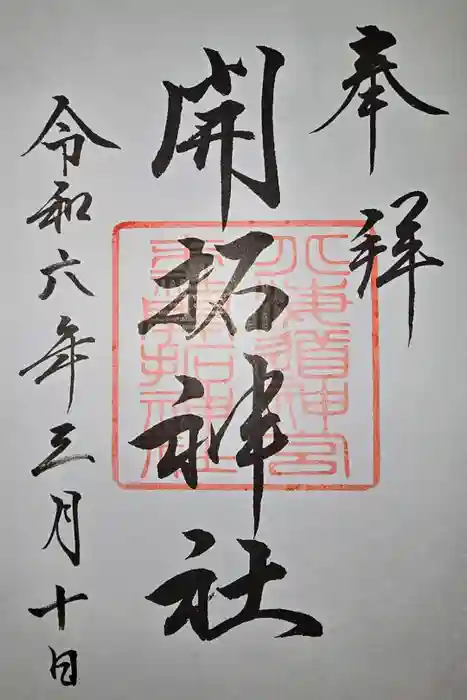 奉拝
開拓神社
北海道神宮
末社開拓神社
令和六年三月十日